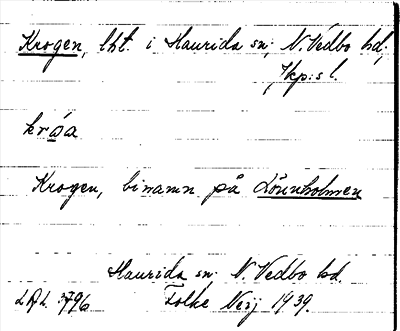 Krogen, lht. i Haurida sn; N. Vedbo hd,
Jkp:s l.
kråa
Krogen, binamn på Lönnholmen
Haurida sn. N. Vedbo hd.
LAL 3796 Folke 1939.